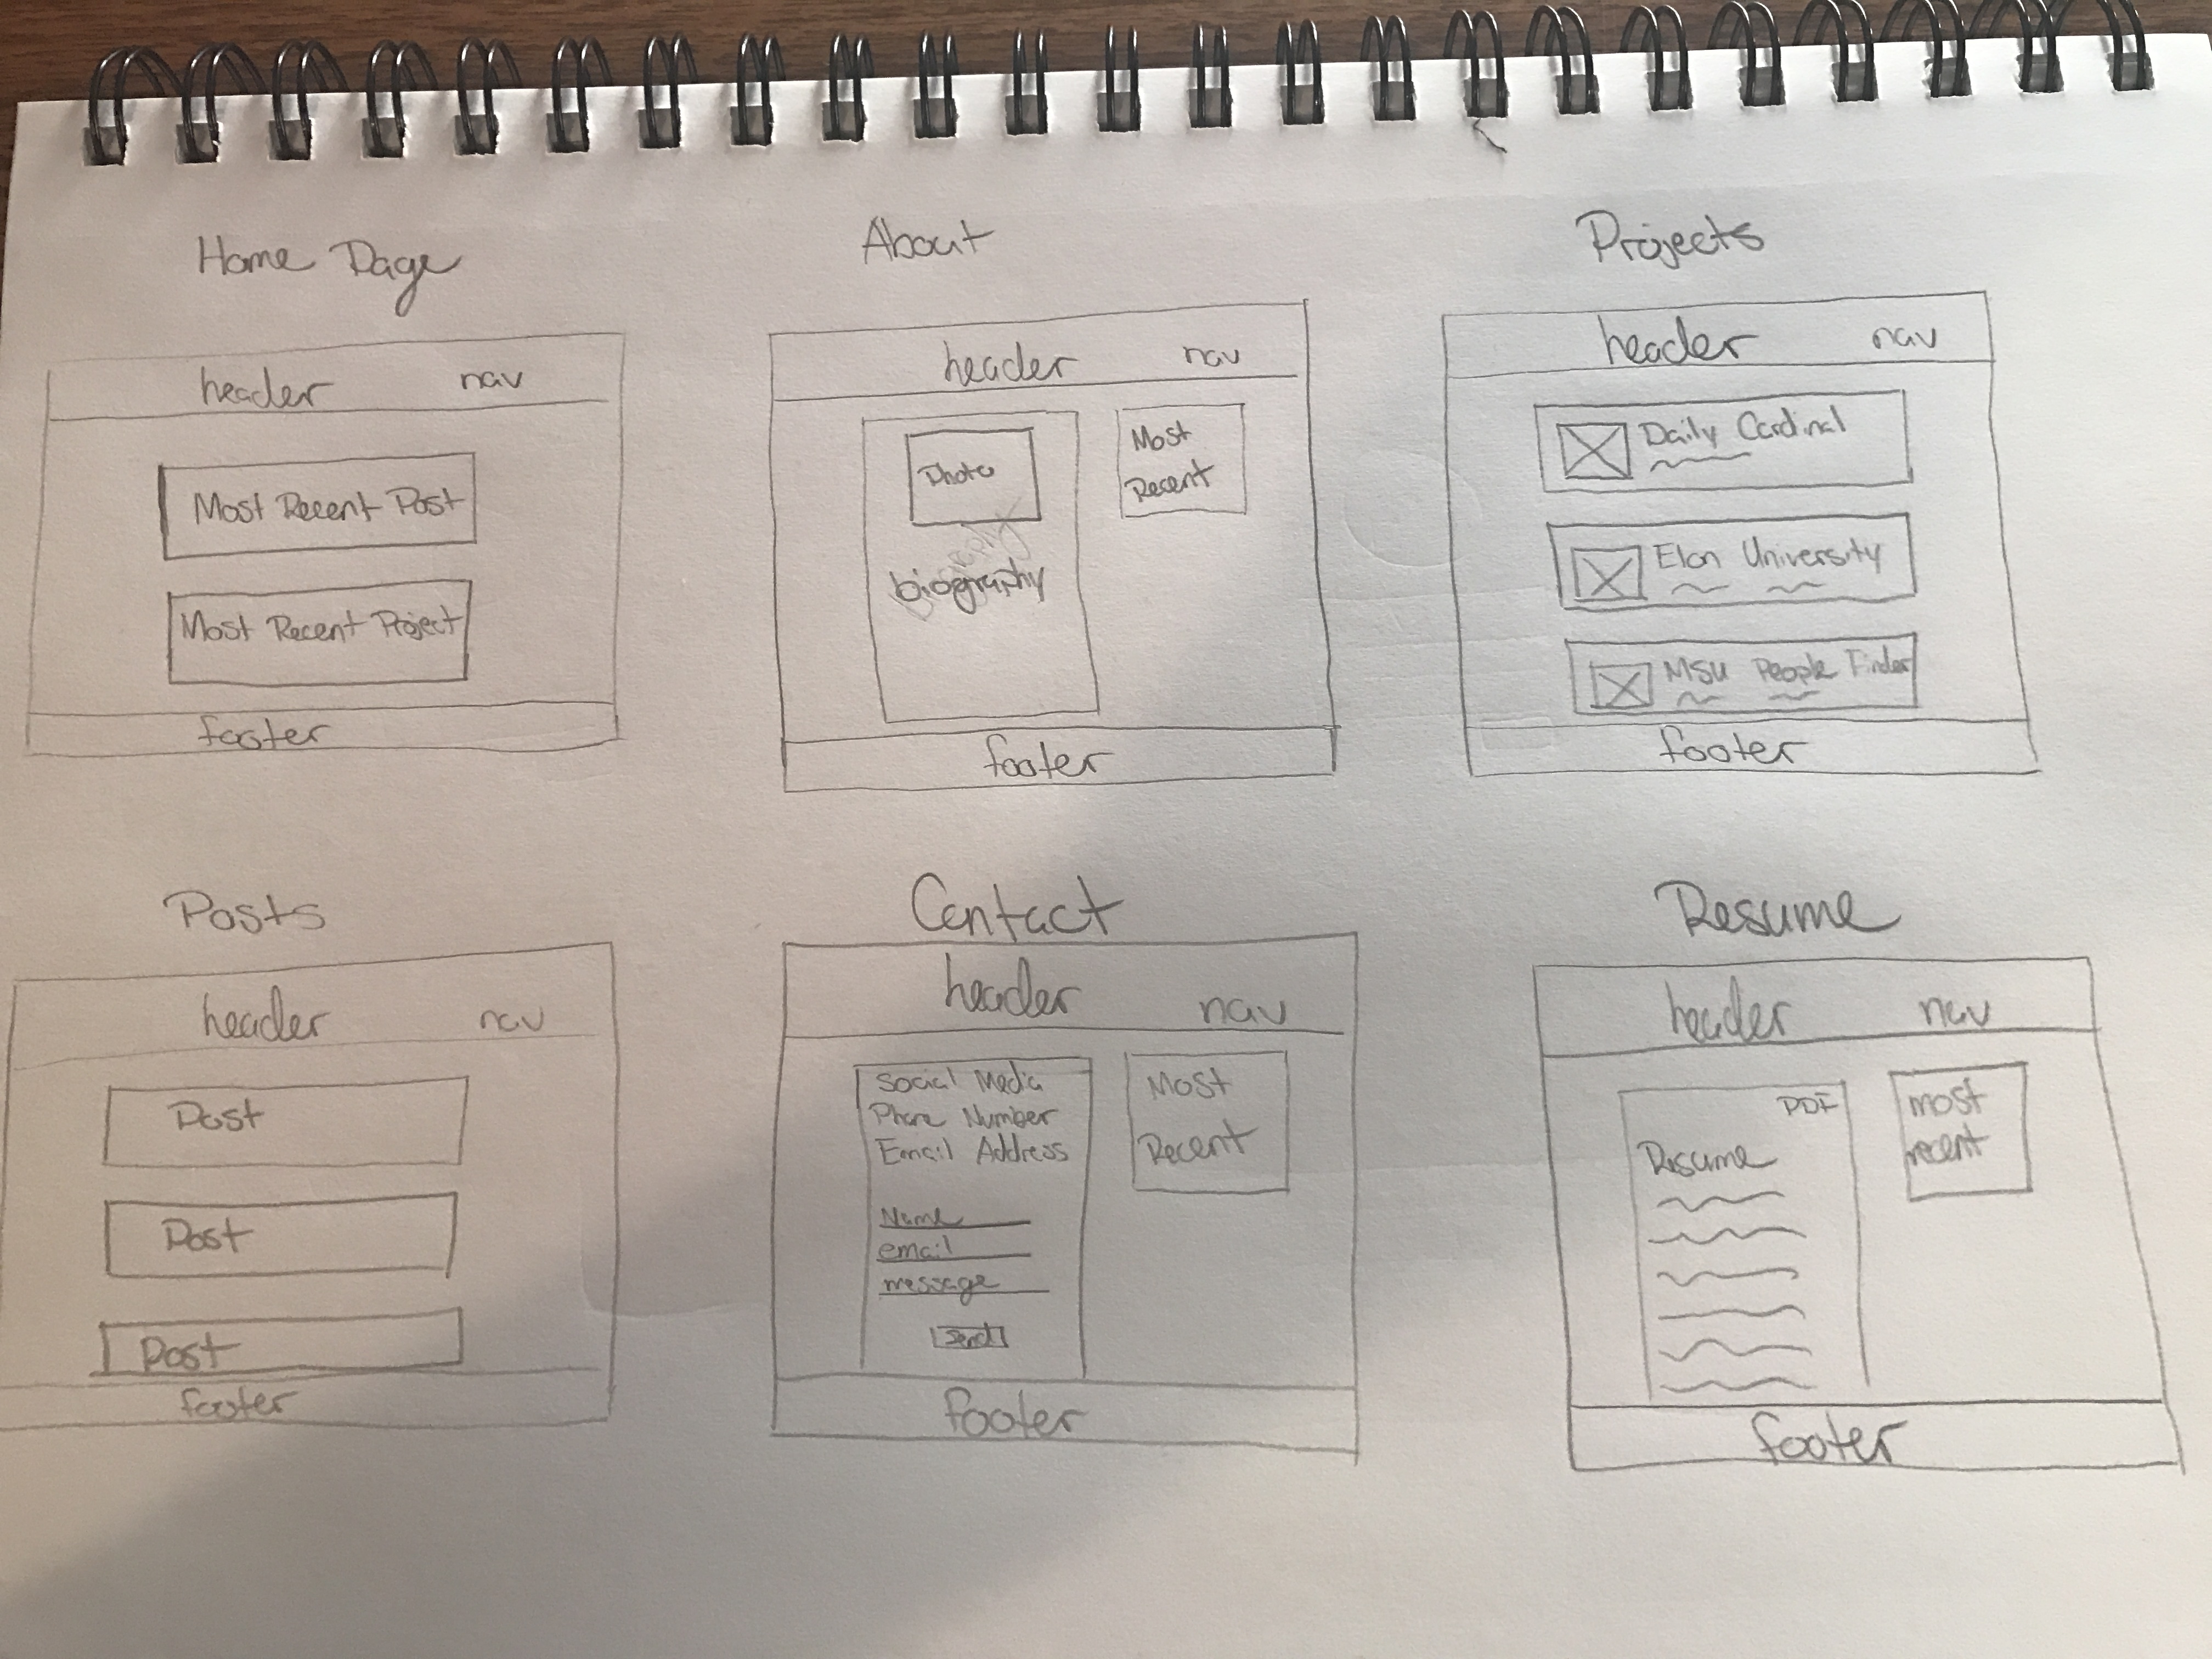 Home Page
header nav
Most Recent Post
Most Recent Project
footer
About
header nav
Photo
biography
Most
Recent
footer
Projects
header nav
Daily Cardinal
Elon University
MSU People Finder
footer
Posts
header nav
Post
Post
Post
footer
Contact
header nav
Social Media
Phone Number
Email Address
Name
email
message
Send
Most
Recent
footer
Resume
header nav
PDF
Resume
most
recent
footer